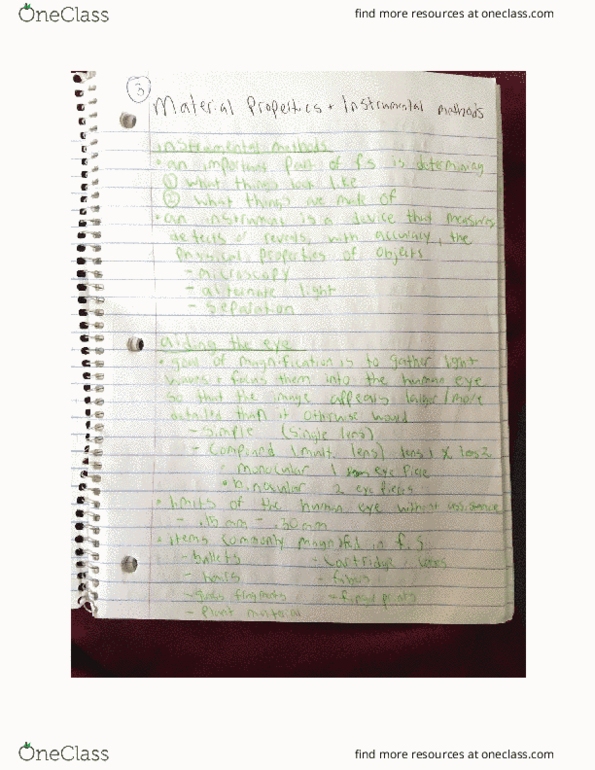 OneClass
find more resources at oneclass.com
3
Material Properties + Instrumental methods
instramental methods
• an important part of fs is determining
① what things look like
② what things are made of
• an instrument is a device that measures
detects or reveals, with accuracy, the
physical properties of objects
- microscopy
- alternate light
- separation
aiding the eye
• goal of magnification is to gather light
waves + focus them into the human eye
so that the image appears larger/more
detailed than it otherwise would
- simple (single lens)
- compound (mult. lens) lens 1 x lens 2
• monocular 1 eye piece
• binocular 2 eye pieces
• limits of the human eye without assistance
- .15 mm - .30 mm
• items commonly magnified in f.s
- bullets - cartridge cases
- hairs - fibers
- glass fragments - fingerprints
- plant material
OneClass
find more resources at oneclass.com